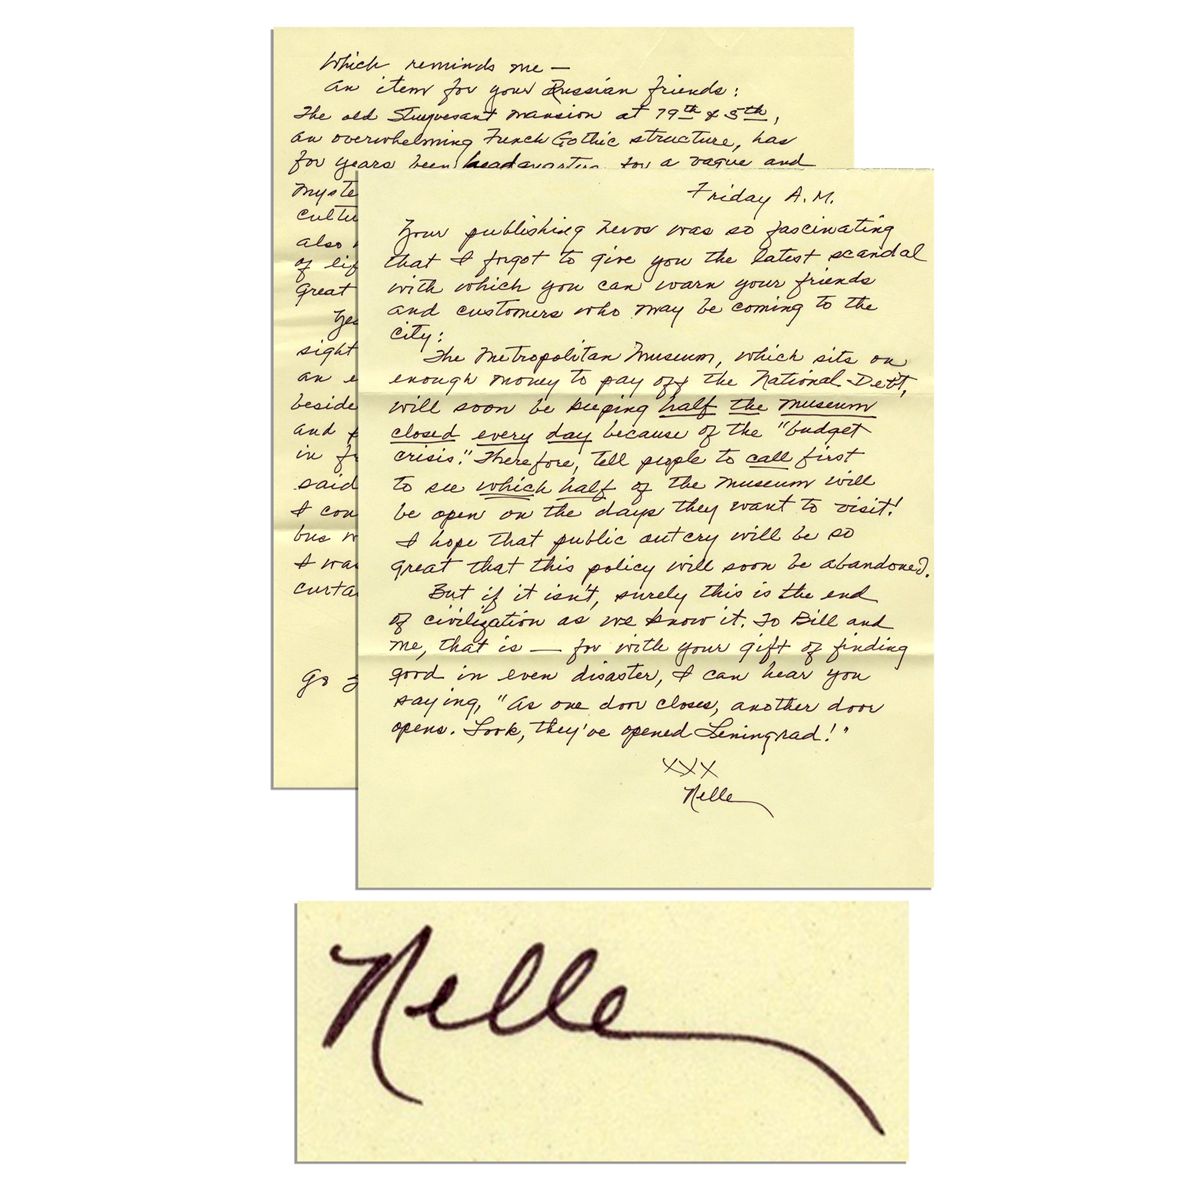 Which reminds me —
An item for your Russian friends:
The old Stuyvesant mansion at 79th & 5th,
an overwhelming French Gothic structure, has
for years been headquarters for a vague and
myste
cultu
also
of lif
great
Yes
sight
an e
beside
and
in f
said
I cou
bus w
I was
curta
Go
Friday A.M.
Your publishing news was so fascinating
that I forgot to give you the latest scandal
with which you can warn your friends
and customers who may be coming to the
city:
The Metropolitan Museum, which sits on
enough money to pay off the National Debt,
will soon be keeping half the museum
closed every day because of the "budget
crisis." Therefore, tell people to call first
to see which half of the museum will
be open on the days they want to visit!
I hope that public outcry will be so
great that this policy will soon be abandoned.
But if it isn't, surely this is the end
of civilization as we know it. To Bill and
me, that is — for with your gift of finding
good in even disaster, I can hear you
saying, "As one door closes, another door
opens. Look, they've opened Leningrad!"
XXX
Nelle
Nelle